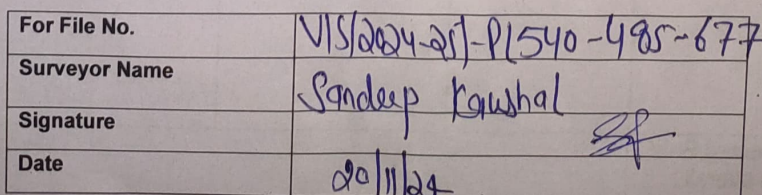 For File No. VIS(2024-25)-PL540-485-677
Surveyor Name Sandeep Kaushal
Signature
Date 20/11/24